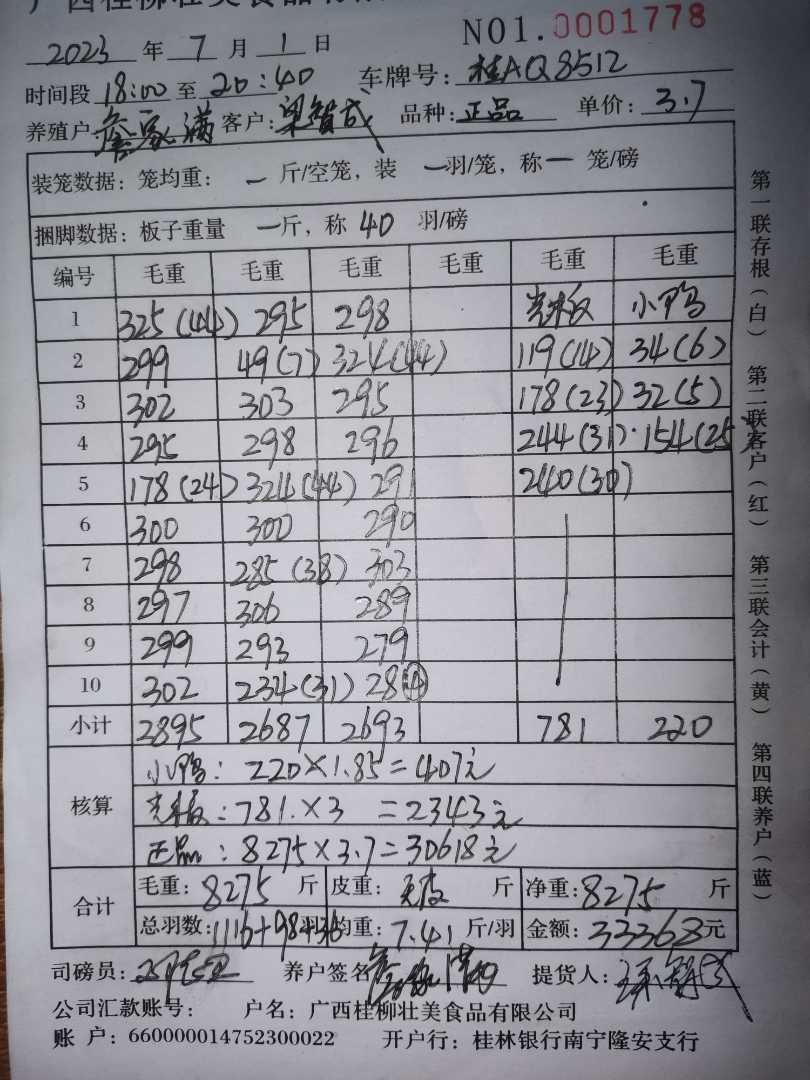 广西桂柳壮美食品有限
NO1.0001778
2023 年 7 月 1 日
时间段 18:00 至 20:40 车牌号: 桂AQ8512
养殖户: 满 客户: 梁智成 品种: 正品 单价: 3.7
装笼数据: 笼均重: 一 斤/空笼, 装 一 羽/笼, 称 一 笼/磅
捆脚数据: 板子重量 一 斤, 称 40 羽/磅
编号 毛重 毛重 毛重 毛重 毛重 毛重
1 325(44) 295 298 小鸭
2 299 49(7) 324(44) 119(14) 34(6)
3 302 303 295 178(23) 32(5)
4 295 298 296 244(31) 154(25)
5 178(24) 324(44) 291 240(30)
6 300 300 290
7 298 285(38) 303
8 297 306 289
9 299 293 279
10 302 234(31) 284
小计 2895 2687 2693 781 220
核算
小鸭: 220×1.85=407元
板: 781.×3 =2343元
正品: 8275×3.7=30618元
合计
毛重: 8275 斤 皮重: 无皮 斤 净重: 8275 斤
总羽数: 1116+98+36 羽 均重: 7.41 斤/羽 金额: 33368元
司磅员: 养户签名: 提货人:
公司汇款账号: 户名: 广西桂柳壮美食品有限公司
账 户: 660000014752300022 开户行: 桂林银行南宁隆安支行
第一联存根(白) 第二联客户(红) 第三联会计(黄) 第四联养户(蓝)